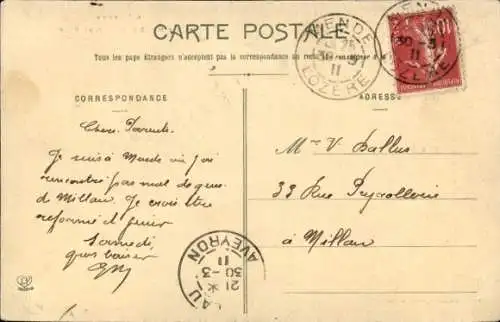 CARTE POSTALE
Tous les pays étrangers n'acceptent pas la correspondance au
CORRESPONDANCE
ADRESSE
MENDE
30 -3
11
LOZÈRE
10
Chers Parents
Je suis à Mende où j'ai
rencontré pas mal de gens
de Millau. Je crois être
réformé et finir
Samedi
gros baiser
Mme V Dallus
33 Rue Peyrollerie
à Millau
AU
21 *
30 -3
11
AVEYRON